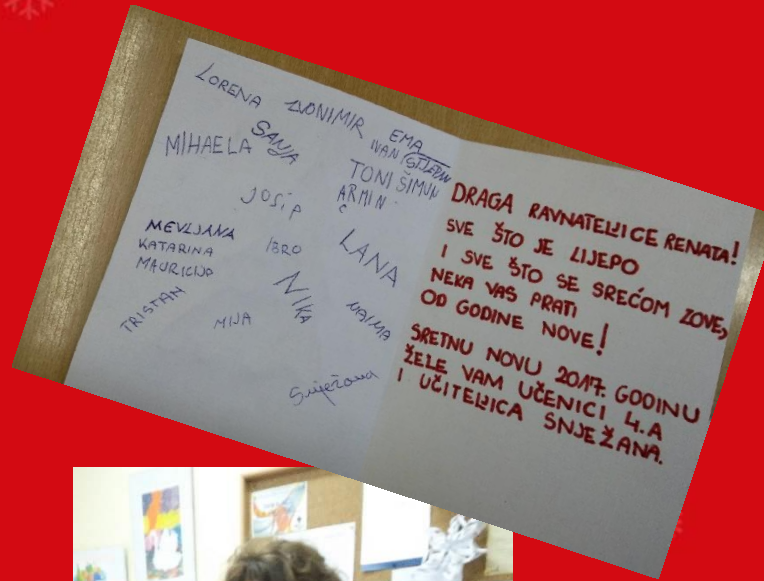 LORENA
ZVONIMIR
EMA
IVAN STJEPAN
MIHAELA
SANJA
TONI ŠIMUN
ARMIN
Č
JOSIP
MEVLJANA
KATARINA
MAURICIJO
IBRO
LANA
NIKA
NAIMA
TRISTAN
MIJA
Snježana
DRAGA RAVNATELJICE RENATA!
SVE ŠTO JE LIJEPO
I SVE ŠTO SE SREĆOM ZOVE,
NEKA VAS PRATI
OD GODINE NOVE!
SRETNU NOVU 2017. GODINU
ŽELE VAM UČENICI 4.A
I UČITELJICA SNJEŽANA.